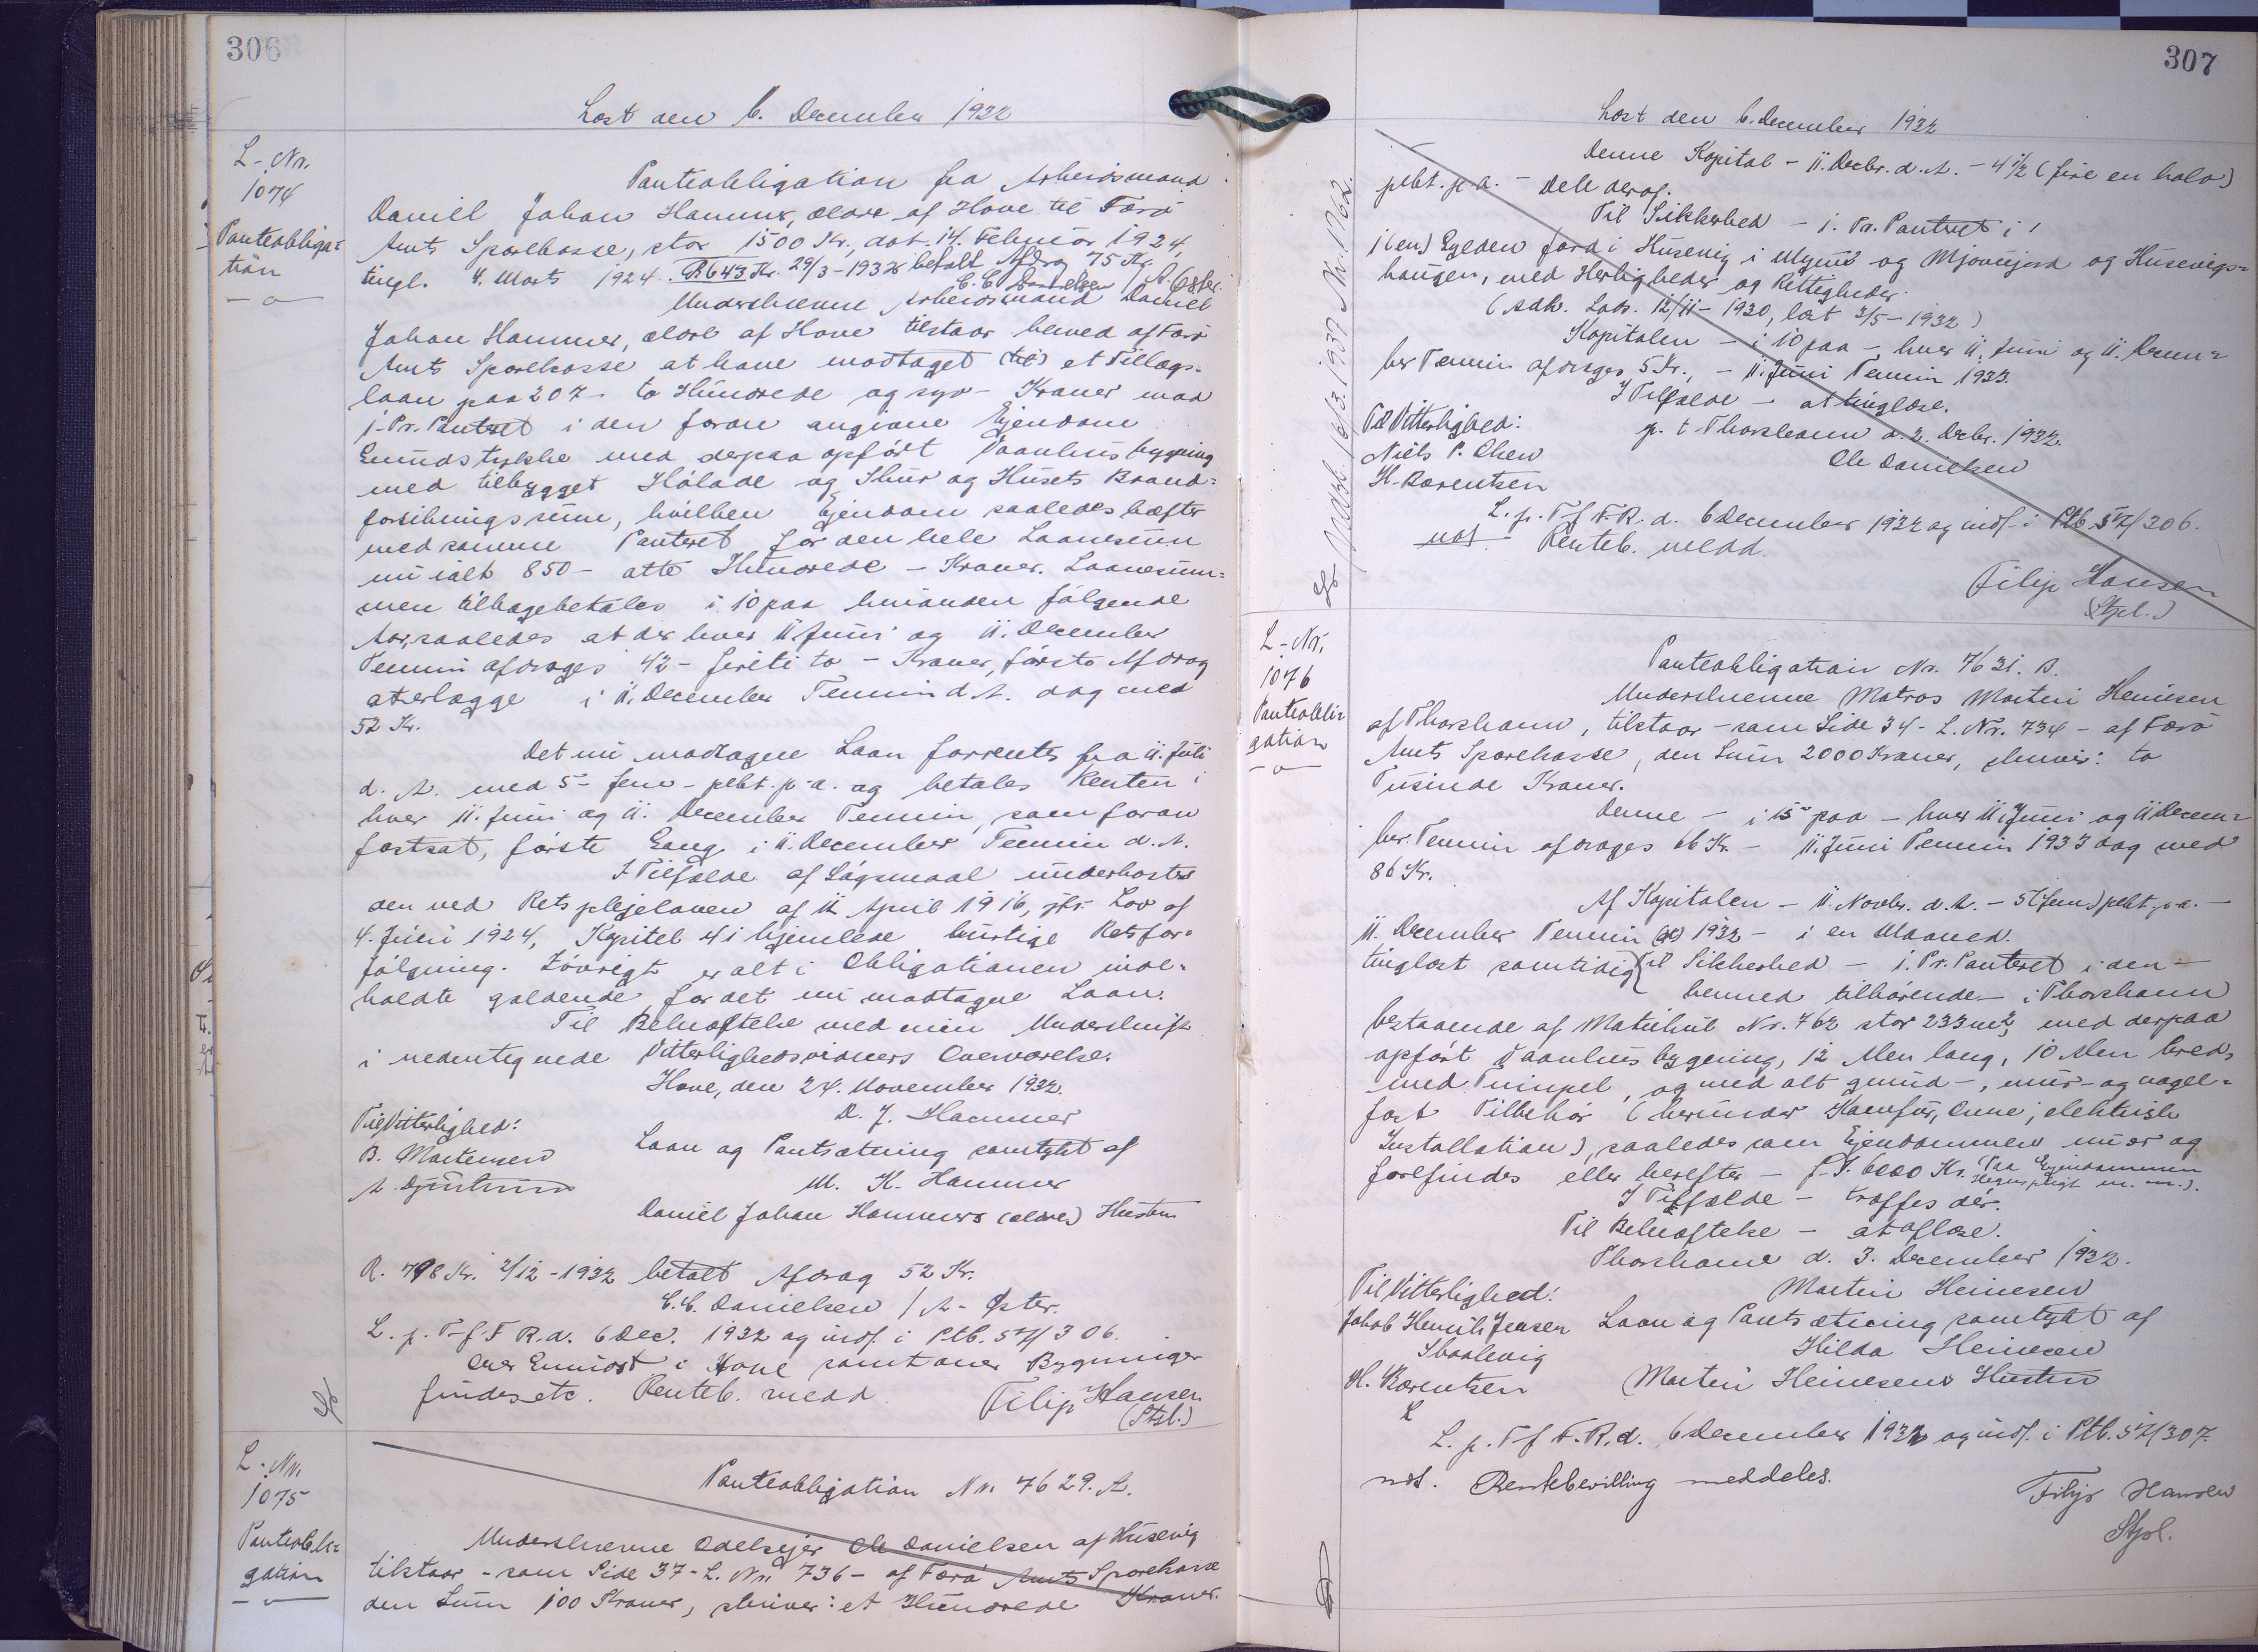 306
Læst den 6. December 1932
L-Nr.
1074
Panteobliga=
tion
Panteobligation fra Arbejdsmand
Daniel Johan Hammer, ældre af Hove til Færø
Amts Sparekasse, stor 1500 Kr., dat. 14. Februar 1924,
tingl. 4. Marts 1924. R 643 Kr. 29/3-1932 betalt Afdrag 75 Kr.
C.C. Danielsen / A. Øster.
Underskrevne Arbejdsmand Daniel
Johan Hammer, ældre af Hove tilstaar herved af Færø
Amts Sparekasse at have modtaget (til) et Tillægs=
laan paa 207 - to Hundrede og syv - Kroner mod
1. Pr. Panteret i den foran angivne Ejendom
Grundstykke med derpaa opført Vaanhusbygning
med tilbygget Hølade og Skur og Husets Brand=
forsikringssum, hvilken Ejendom saaledes hæfter
med samme Panteret for den hele Laanesum
nu ialt 850 - otte Hundrede - Kroner. Laanesum=
men tilbagebetales i 10 paa hinanden følgende
Aar, saaledes at der hver 11. Juni og 11. December
Termin afdrages 42 - firti to - Kroner, første Afdrag
at erlægge i 11. December Termin d. A. dog med
52 Kr.
Det nu modtagne Laan forrentes fra 11. Juli
d. A. med 5 - fem - pCt. p. a. og betales Renten i
hver 11. Juni og 11. December Termin, som foran
fastsat, første Gang i 11. December Termin d. A.
I Tilfælde af Søgsmaal underkastes
den ved Retsplejeloven af 11 April 1916, jfr. Lov af
4. Juni 1924, Kapitel 4 i hjemlede hurtige Retsfor=
følgning. Iøvrigt er alt i Obligationen inde=
holdte gældende for det nu modtagne Laan.
Til Bekræftelse med min Underskrift
i nedentegnede Vitterlighedsvidners Overværelse.
Hove, den 24. November 1932.
D. J. Hammer
Til Vitterlighed:
Laan og Pantsætning samtykt af
B. Mortensen
M. K. Hammer
Daniel Johan Hammers (ældre) Hustru
R. 798 Kr. 2/12-1932 betalt Afdrag 52 Kr.
C.C. Danielsen / A. Øster.
L. p. T. f. F. R. d. 6 Dec. 1932 og indf. i Ptb. 5 Z/306.
i Hove samt over Bygninger
findes etc. Renteb. medd. Filip Hansen
(Stpl.)
L-Nr.
1075
Panteobli=
gation
Panteobligation Nr. 7629. A.
Underskrevne Odelsejer Ole Danielsen af Húsevig
tilstaar - som Side 37 - L. Nr. 736 - af Færø Amts Sparekasse
den Sum 100 Kroner, skriver: et Hundrede Kroner.
307
Læst den 6. December 1932
Denne Kapital - 11. Decbr. d. A. - 4 1/2 (fire en halv)
pCt. p. a. - Dele deraf.
Til Sikkerhed - 1. Pr. Panteret i
1 (en) Gylden Jord i Húsevig i og Mjovujord og Húsevigs=
haugen, med Herligheder og Rettigheder.
(Adk. Lods. 12/11-1930, læst 3/5-1932)
Kapitalen - i 10 paa -, hver 11. Juni og 11. Decem=
ber Termin afdrages 5 Kr., - 11. Juni Termin 1933.
I Tilfælde - at tinglæse.
Til Vitterlighed:
p. t. Thorshavn d. 2. Decbr. 1932.
Niels P. Olsen
Ole Danielsen
H. Bærentsen
L. p. T. f. F. R. d. 6 December 1932 og indf. i Ptb. 5 Z/306.
not. Renteb. medd.
Filip Hansen
(Stpl.)
Udsl. 16/3.1937 Nr. 1762.
L-Nr.
1076
Panteobli=
gation
Panteobligation Nr. 7631. B.
Underskrevne Matros Martin Heinesen
af Thorshavn, tilstaar - som Side 34 - L. Nr. 734 - af Færø
Amts Sparekasse, den Sum 2000 Kroner, skriver: to
Tusinde Kroner.
Denne - i 15 paa - hver 11. Juni og 11 Decem=
ber Termin afdrages 66 Kr. - 11. Juni Termin 1933 dog med
86 Kr.
Af Kapitalen - 11. Novbr. d. A. - 5 (fem) pCt. p. a. -
11. December Termin 1932 - i en Maaned.
tinglæst samtidig Til Sikkerhed - 1. Pr. Panteret i den -
herved tilhørende - i Thorshavn
bestaaende af Matrikul Nr. 462 stor 233 m², med derpaa
opført Vaanhusbygning, 12 Alen lang, 10 Alen bred,
med Trimpel, og med alt grund-, mur- og nagel=
fast Tilbehør (herunder Komfur, Ovne, elektrisk
Installation), saaledes som Ejendommen nu er og
forefindes eller herefter - f. S. 6000 Kr. (Paa Ejendommen
Hegnspligt m. m.).
I Tilfælde - træffes der.
Til Bekræftelse - at aflæse.
Thorshavn d. 3. December 1932.
Til Vitterlighed:
Martin Heinesen
Jakob Henrik Jensen Laan og Pantsætning samtykt af
Skaalevig
Hilda Heinesen
H. Bærentsen
Martin Heinesens Hustru
L. p. T. f. F. R. d. 6 December 1932 og indf. i Ptb. 5 Z/307.
not. Rentebevilling meddeles.
Filip Hansen
Stpl.